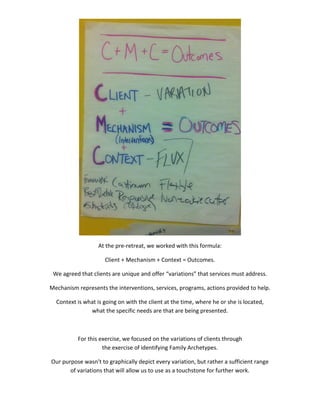 C + M + C = Outcomes
CLIENT - VARIATION
+
MECHANISM = OUTCOMES
(Interventions)
+
CONTEXT - FLUX
Framework Continuum Flexible
Responsive Non-cookie cutter
At the pre-retreat, we worked with this formula:
Client + Mechanism + Context = Outcomes.
We agreed that clients are unique and offer “variations” that services must address.
Mechanism represents the interventions, services, programs, actions provided to help.
Context is what is going on with the client at the time, where he or she is located,
what the specific needs are that are being presented.
For this exercise, we focused on the variations of clients through
the exercise of identifying Family Archetypes.
Our purpose wasn’t to graphically depict every variation, but rather a sufficient range
of variations that will allow us to use as a touchstone for further work.